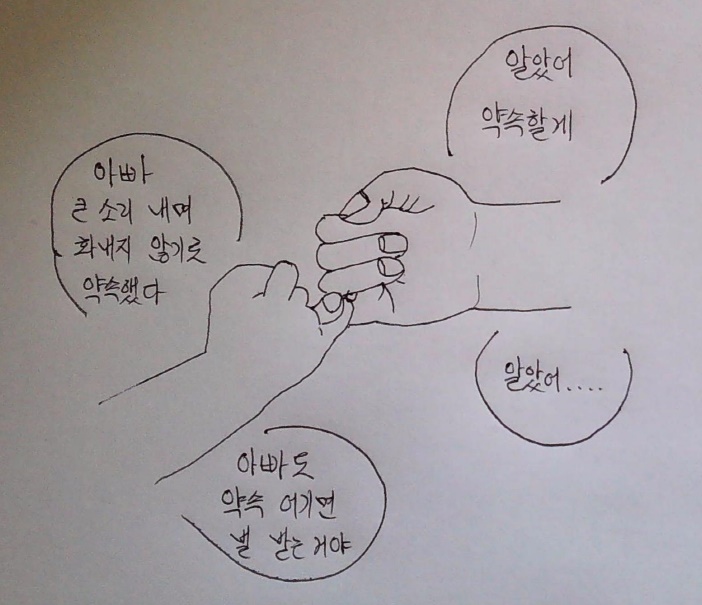 아빠
큰 소리 내며
화내지 않기로
약속했다
알았어
약속할게
아빠도
약속 어기면
벌 받는거야
알았어.....